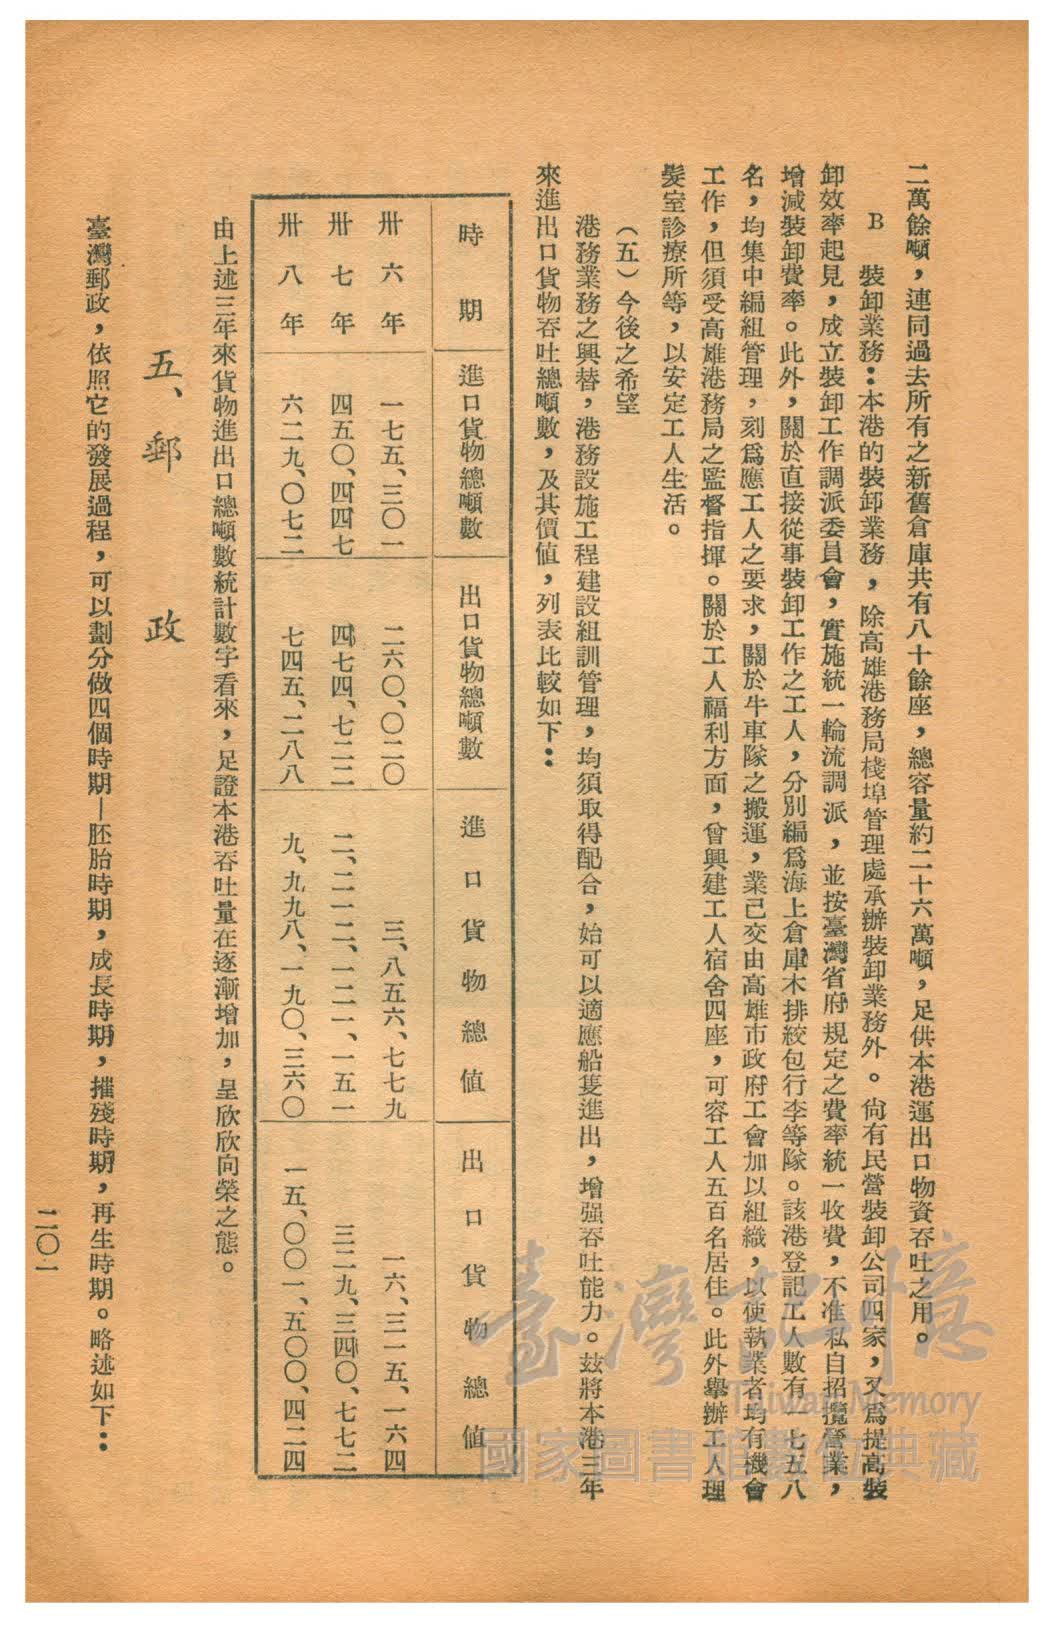 二萬餘噸，連同過去所有之新舊倉庫共有八十餘座，總容量約二十六萬噸，足供本港運出口物資吞吐之用。
B　裝卸業務：本港的裝卸業務，除高雄港務局棧埠管理處承辦裝卸業務外。尙有民營裝卸公司四家，又爲提高裝
卸效率起見，成立裝卸工作調派委員會，實施統一輪流調派，並按臺灣省府規定之費率統一收費，不准私自招攬營業，
增減裝卸費率。此外，關於直接從事裝卸工作之工人，分別編爲海上倉庫木排絞包行李等隊。該港登記工人數有一七五八
名，均集中編組管理，刻爲應工人之要求，關於牛車隊之搬運，業已交由高雄市政府工會加以組織，以使執業者均有機會
工作，但須受高雄港務局之監督指揮。關於工人福利方面，曾興建工人宿舍四座，可容工人五百名居住。此外舉辦工人理
髮室診療所等，以安定工人生活。
（五）今後之希望
港務業務之興替，港務設施工程建設組訓管理，均須取得配合，始可以適應船隻進出，增强吞吐能力。玆將本港三年
來進出口貨物吞吐總噸數，及其價值，列表比較如下：
時期　進口貨物總噸數　出口貨物總噸數　進口貨物總值　出口貨物總值
卅六年　一七五、三〇一　二六〇、〇二〇　三、八五六、七七九　一六、三一五、一六四
卅七年　四五〇、四四七　四七四、七二二　二、二一二、一二一、一五一　三二九、三四〇、七七二
卅八年　六二九、〇七二　七四五、二八八　九、九九八、一九〇、三六〇　一五、〇〇一、五〇〇、四二四
由上述三年來貨物進出口總噸數統計數字看來，足證本港吞吐量在逐漸增加，呈欣欣向榮之態。
五、郵政
臺灣郵政，依照它的發展過程，可以劃分做四個時期—胚胎時期，成長時期，摧殘時期，再生時期。略述如下：
二〇一
臺灣記憶
Taiwan Memory
國家圖書館數位典藏